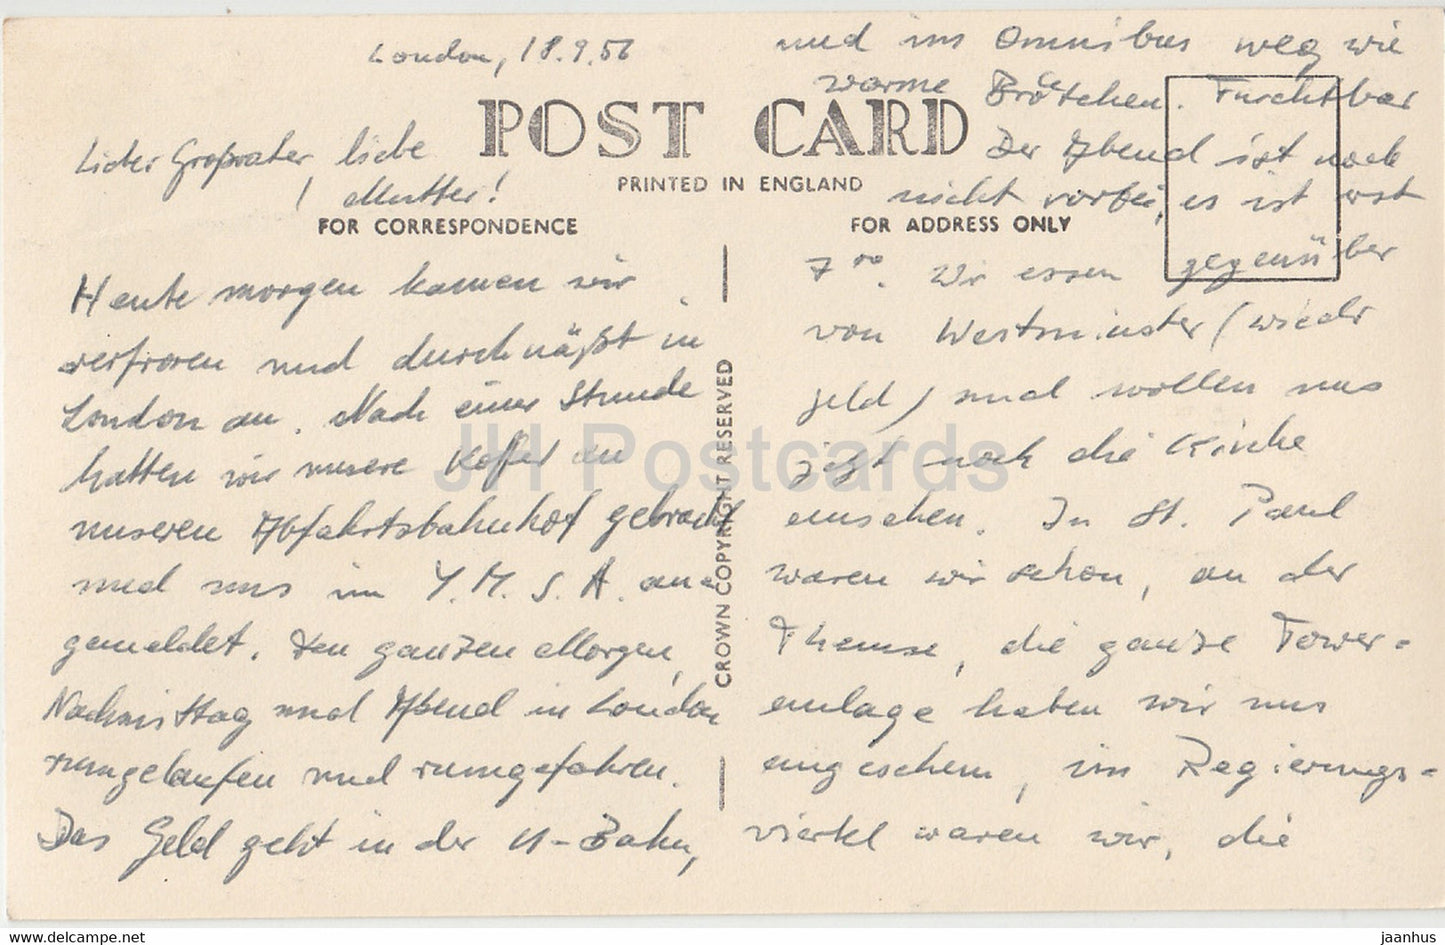 London, 18.9.56
POST CARD
PRINTED IN ENGLAND
FOR CORRESPONDENCE
FOR ADDRESS ONLY
CROWN COPYRIGHT RESERVED
Lieber Großvater, liebe
Mutter!
Heute morgen kamen wir
verfroren und durchnäßt in
London an. Nach einer Stunde
hatten wir unsere Koffer an
unseren Abfahrtsbahnhof gebracht
und uns im Y.M.S.A. an-
gemeldet. Den ganzen Morgen,
Nachmittag und Abend in London
rumgelaufen und rumgefahren.
Das Geld geht in der U-Bahn,
und im Omnibus weg wie
warme Brötchen. Furchtbar
Der Abend ist noch
nicht vorbei, es ist erst
7⁰⁰. Wir essen gegenüber
von Westminster (wieder
Geld) und wollen uns
jetzt noch die Kirche
ansehen. In St. Paul
waren wir schon, an der
Themse, die ganze Tower-
anlage haben wir uns
angesehen, im Regierungs-
viertel waren wir, die
JH Postcards
www.delcampe.net
jaanhus